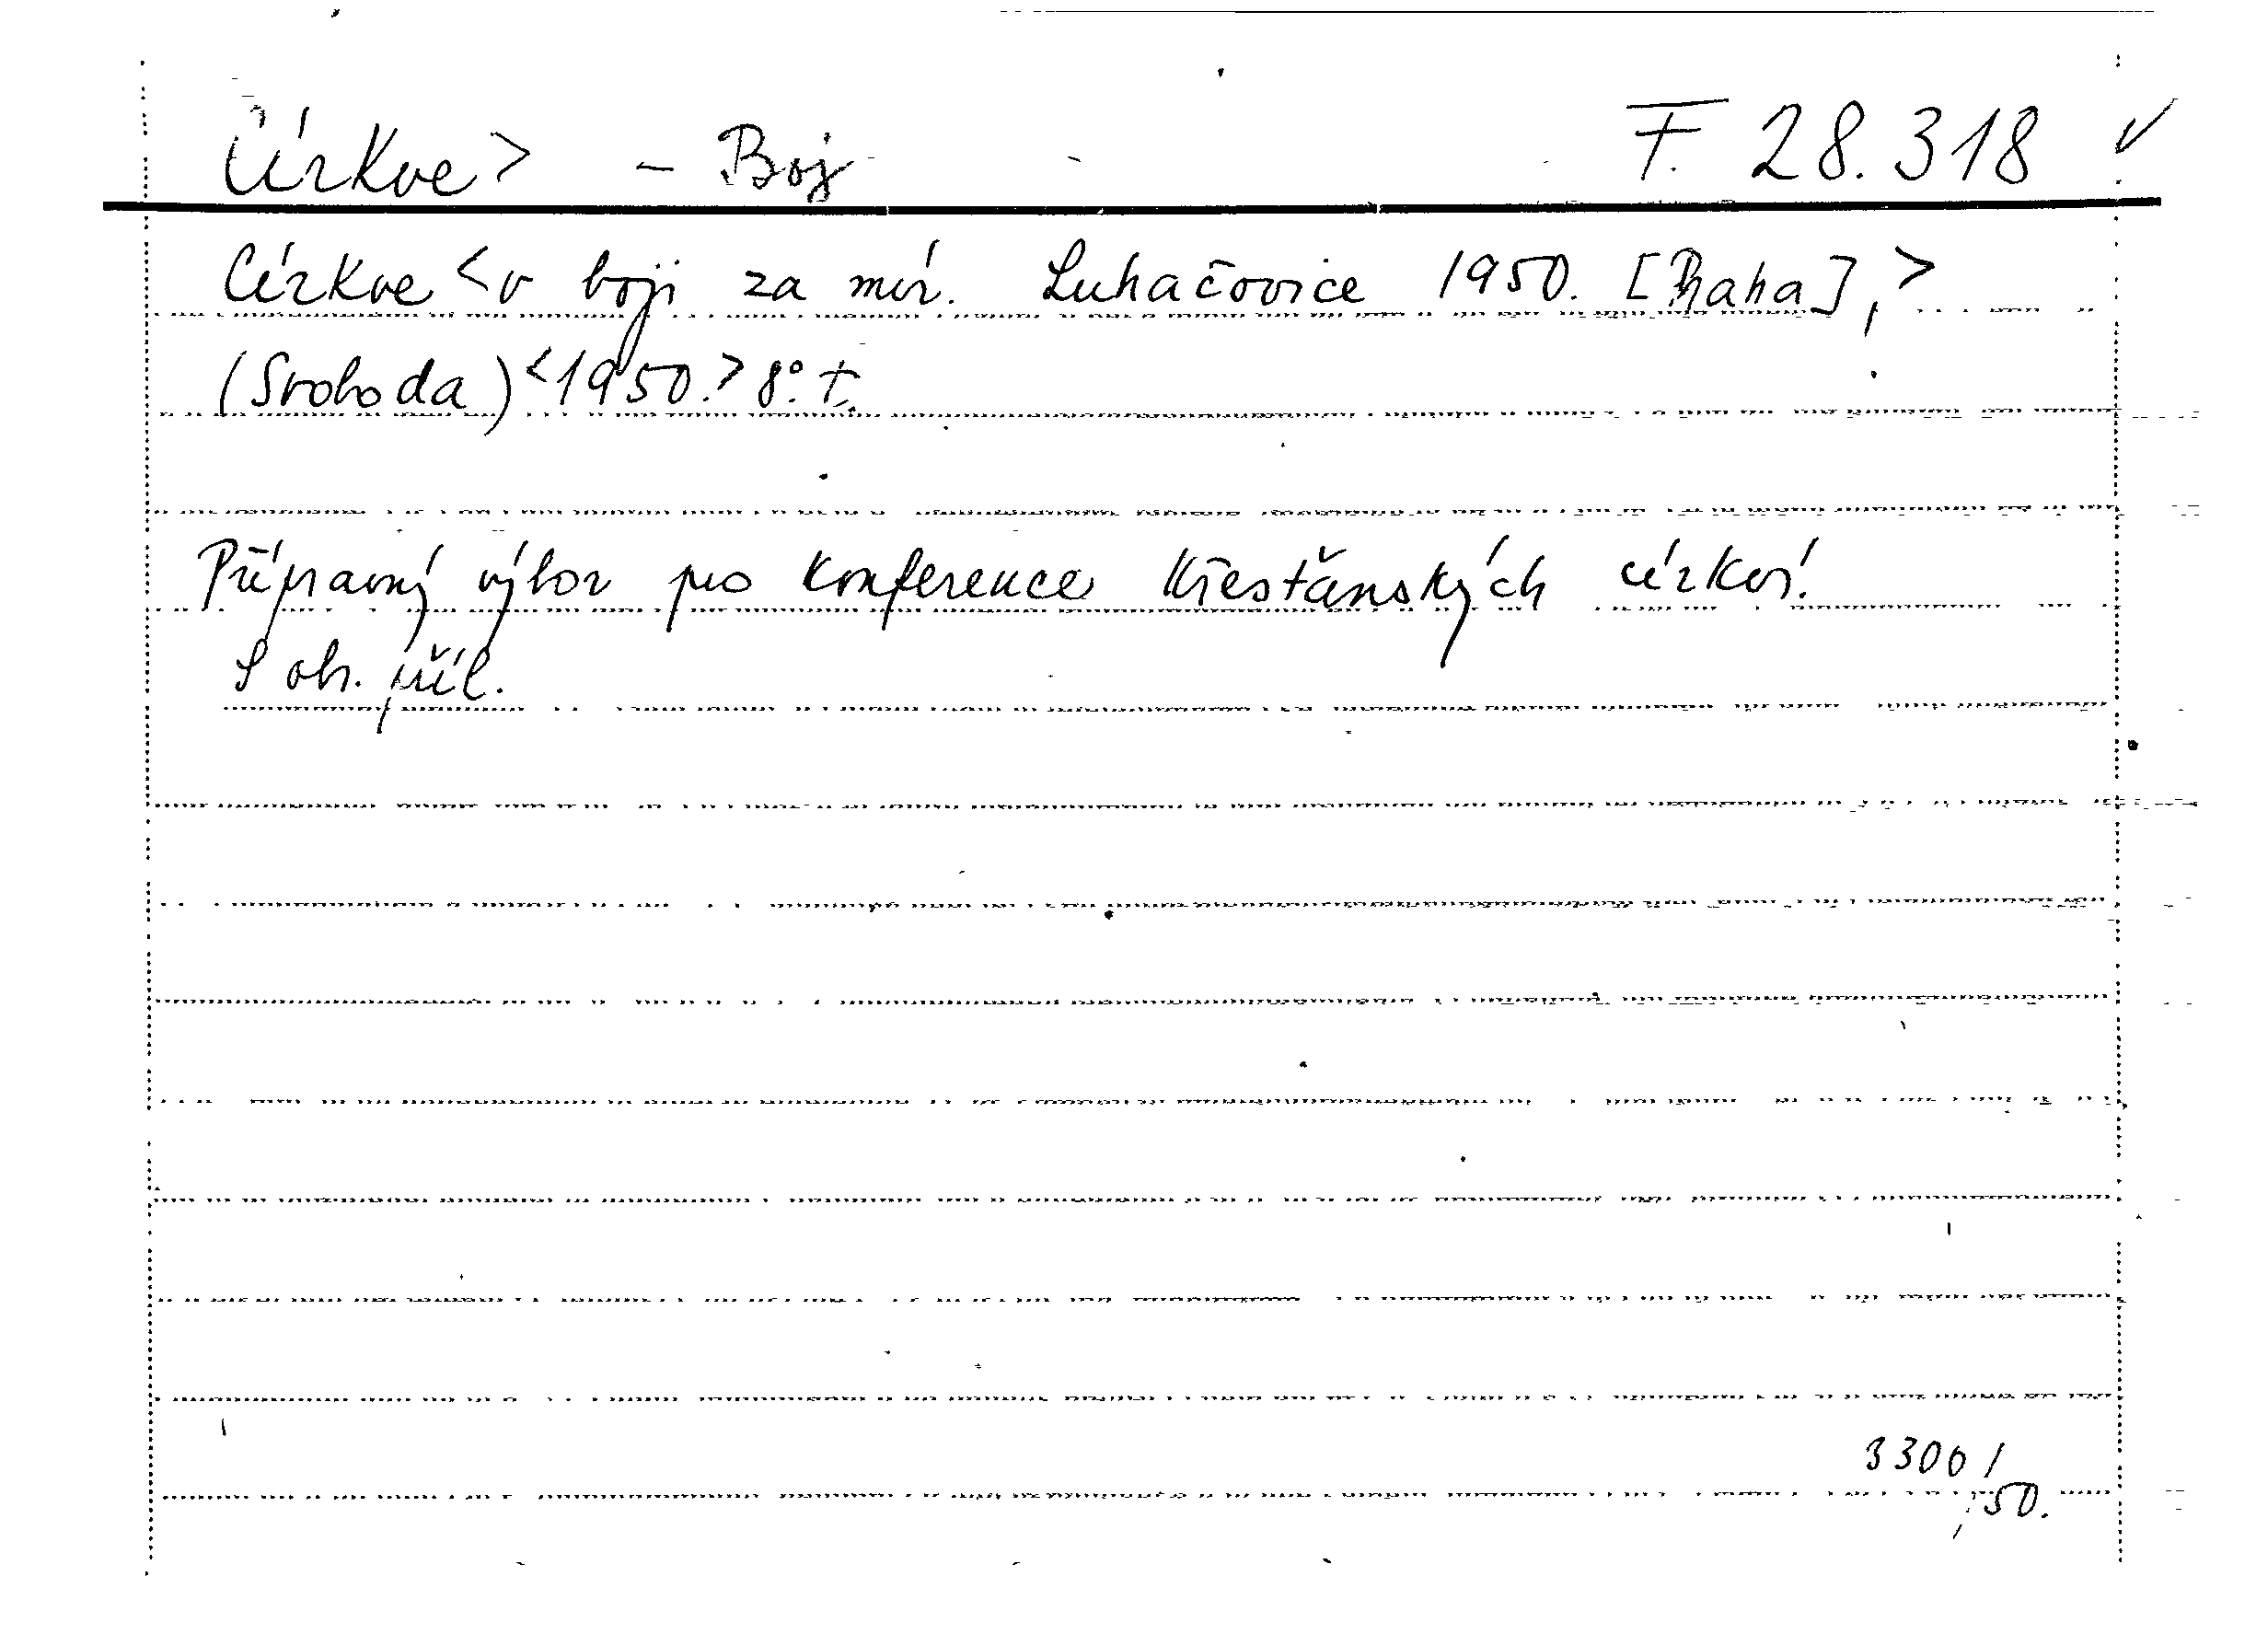 Církve> - Boj F. 28.318 ✓
Církve <v boji za mír. Luhačovice 1950. [Praha],>
(Svoboda) <1950.> 8°. t.
Přípravný výbor pro konference křesťanských církví.
S obr. příl.
3300/
50.